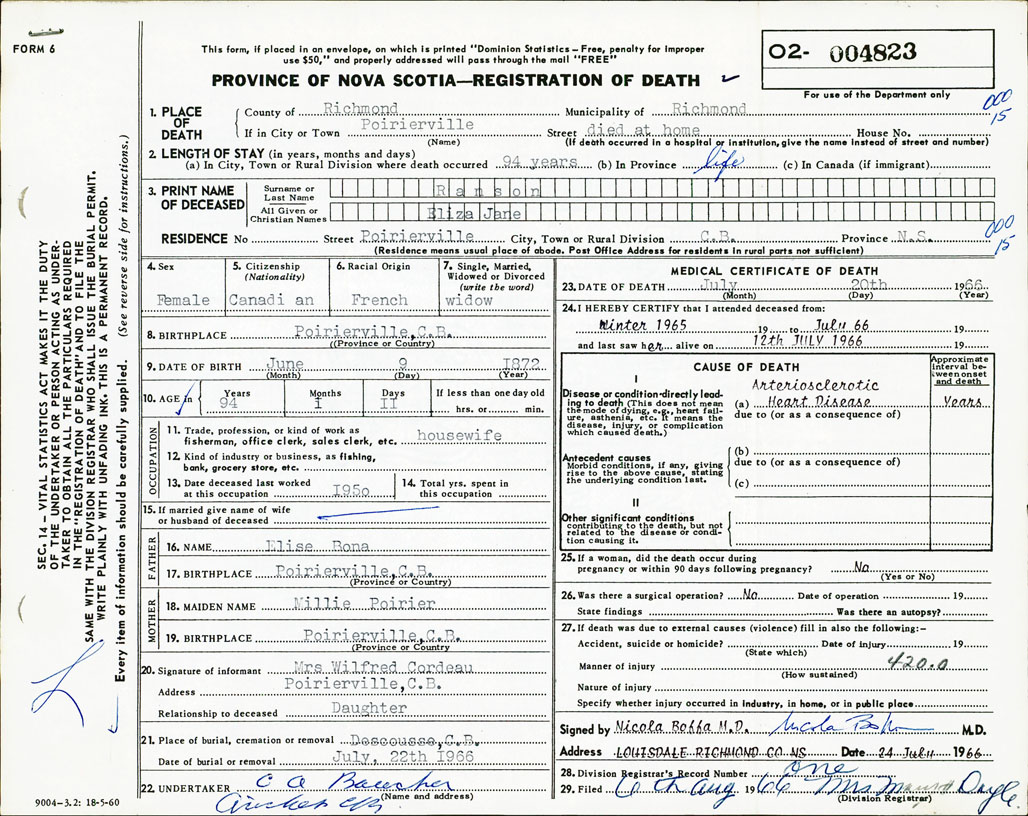 FORM 6
This form, if placed in an envelope, on which is printed "Dominion Statistics – Free, penalty for improper
use $50," and properly addressed will pass through the mail "FREE"
PROVINCE OF NOVA SCOTIA—REGISTRATION OF DEATH
O2- 004823
For use of the Department only
000
15
1. PLACE OF DEATH
County of Richmond Municipality of Richmond
If in City or Town Poirierville Street died at home House No.
(Name) (If death occurred in a hospital or institution, give the name instead of street and number)
2. LENGTH OF STAY (in years, months and days)
(a) In City, Town or Rural Division where death occurred 94 years (b) In Province life (c) In Canada (if immigrant)
3. PRINT NAME OF DECEASED
Surname or Last Name Ranson
All Given or Christian Names Eliza Jane
000
15
RESIDENCE No Street Poirierville City, Town or Rural Division C.B. Province N.S.
(Residence means usual place of abode. Post Office Address for residents in rural parts not sufficient)
4. Sex
Female
5. Citizenship
(Nationality)
Canadi an
6. Racial Origin
French
7. Single, Married,
Widowed or Divorced
(write the word)
widow
8. BIRTHPLACE Poirierville,C.B.
(Province or Country)
9. DATE OF BIRTH June 9 1872
(Month) (Day) (Year)
10. AGE in Years Months Days If less than one day old
94 1 II hrs. or min.
OCCUPATION
11. Trade, profession, or kind of work as
fisherman, office clerk, sales clerk, etc. housewife
12. Kind of industry or business, as fishing,
bank, grocery store, etc.
13. Date deceased last worked
at this occupation I95o
14. Total yrs. spent in
this occupation
15. If married give name of wife
or husband of deceased
FATHER
16. NAME Elise Bona
17. BIRTHPLACE Poirierville,C.B.
(Province or Country)
MOTHER
18. MAIDEN NAME Millie Poirier
19. BIRTHPLACE Poirierville,C.B.
(Province or Country)
20. Signature of informant Mrs Wilfred Cordeau
Address Poirierville,C.B.
Relationship to deceased Daughter
21. Place of burial, cremation or removal Descousse,C.B.
Date of burial or removal July, 22th I966
22. UNDERTAKER C A
(Name and address)
9004–3.2: 18-5-60
MEDICAL CERTIFICATE OF DEATH
23. DATE OF DEATH July 20th 1966
(Month) (Day) (Year)
24. I HEREBY CERTIFY that I attended deceased from:
Winter 1965 19 to July 66 19
and last saw her alive on 12th JULY 1966 19
CAUSE OF DEATH
Approximate interval between onset and death
I
Disease or condition directly leading to death (This does not mean the mode of dying, e.g., heart failure, asthenia, etc. It means the disease, injury, or complication which caused death.)
Arteriosclerotic
(a) Heart Disease Years
due to (or as a consequence of)
Antecedent causes
Morbid conditions, if any, giving rise to the above cause, stating the underlying condition last.
(b)
due to (or as a consequence of)
(c)
II
Other significant conditions
contributing to the death, but not related to the disease or condition causing it.
25. If a woman, did the death occur during
pregnancy or within 90 days following pregnancy? No
(Yes or No)
26. Was there a surgical operation? No Date of operation 19
State findings Was there an autopsy?
27. If death was due to external causes (violence) fill in also the following:–
Accident, suicide or homicide? Date of injury 19
(State which)
Manner of injury 420.0
(How sustained)
Nature of injury
Specify whether injury occurred in industry, in home, or in public place
Signed by Nicola Boffa M.D. Nicola Boffa M.D.
Address LOUISDALE RICHMOND CO NS Date 24 July 1966
28. Division Registrar's Record Number one
29. Filed 6th Aug 1966 Mrs Doyle
(Division Registrar)
SEC. 14 – VITAL STATISTICS ACT MAKES IT THE DUTY
OF THE UNDERTAKER OR PERSON ACTING AS UNDER-
TAKER TO OBTAIN ALL THE PARTICULARS REQUIRED
IN THE "REGISTRATION OF DEATH" AND TO FILE THE
SAME WITH THE DIVISION REGISTRAR WHO SHALL ISSUE THE BURIAL PERMIT.
WRITE PLAINLY WITH UNFADING INK. THIS IS A PERMANENT RECORD.
Every item of information should be carefully supplied. (See reverse side for instructions.)